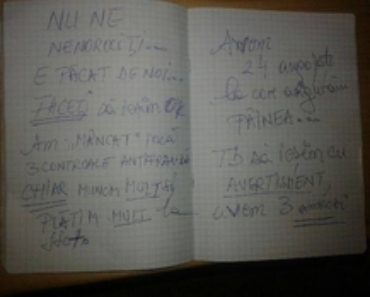 NU NE
NENOROCIȚI....
E PĂCAT DE NOI...
FACEȚI să ieșim OK
Am "MÂNCAT" încă
3 CONTROALE
CHIAR MUNCIM MULT și
PLĂTIM MULT la
stat
Avem
24 angajați
la care asigurăm
PÂINEA...
TB să ieșim cu
AVERTISMENT,
avem 3